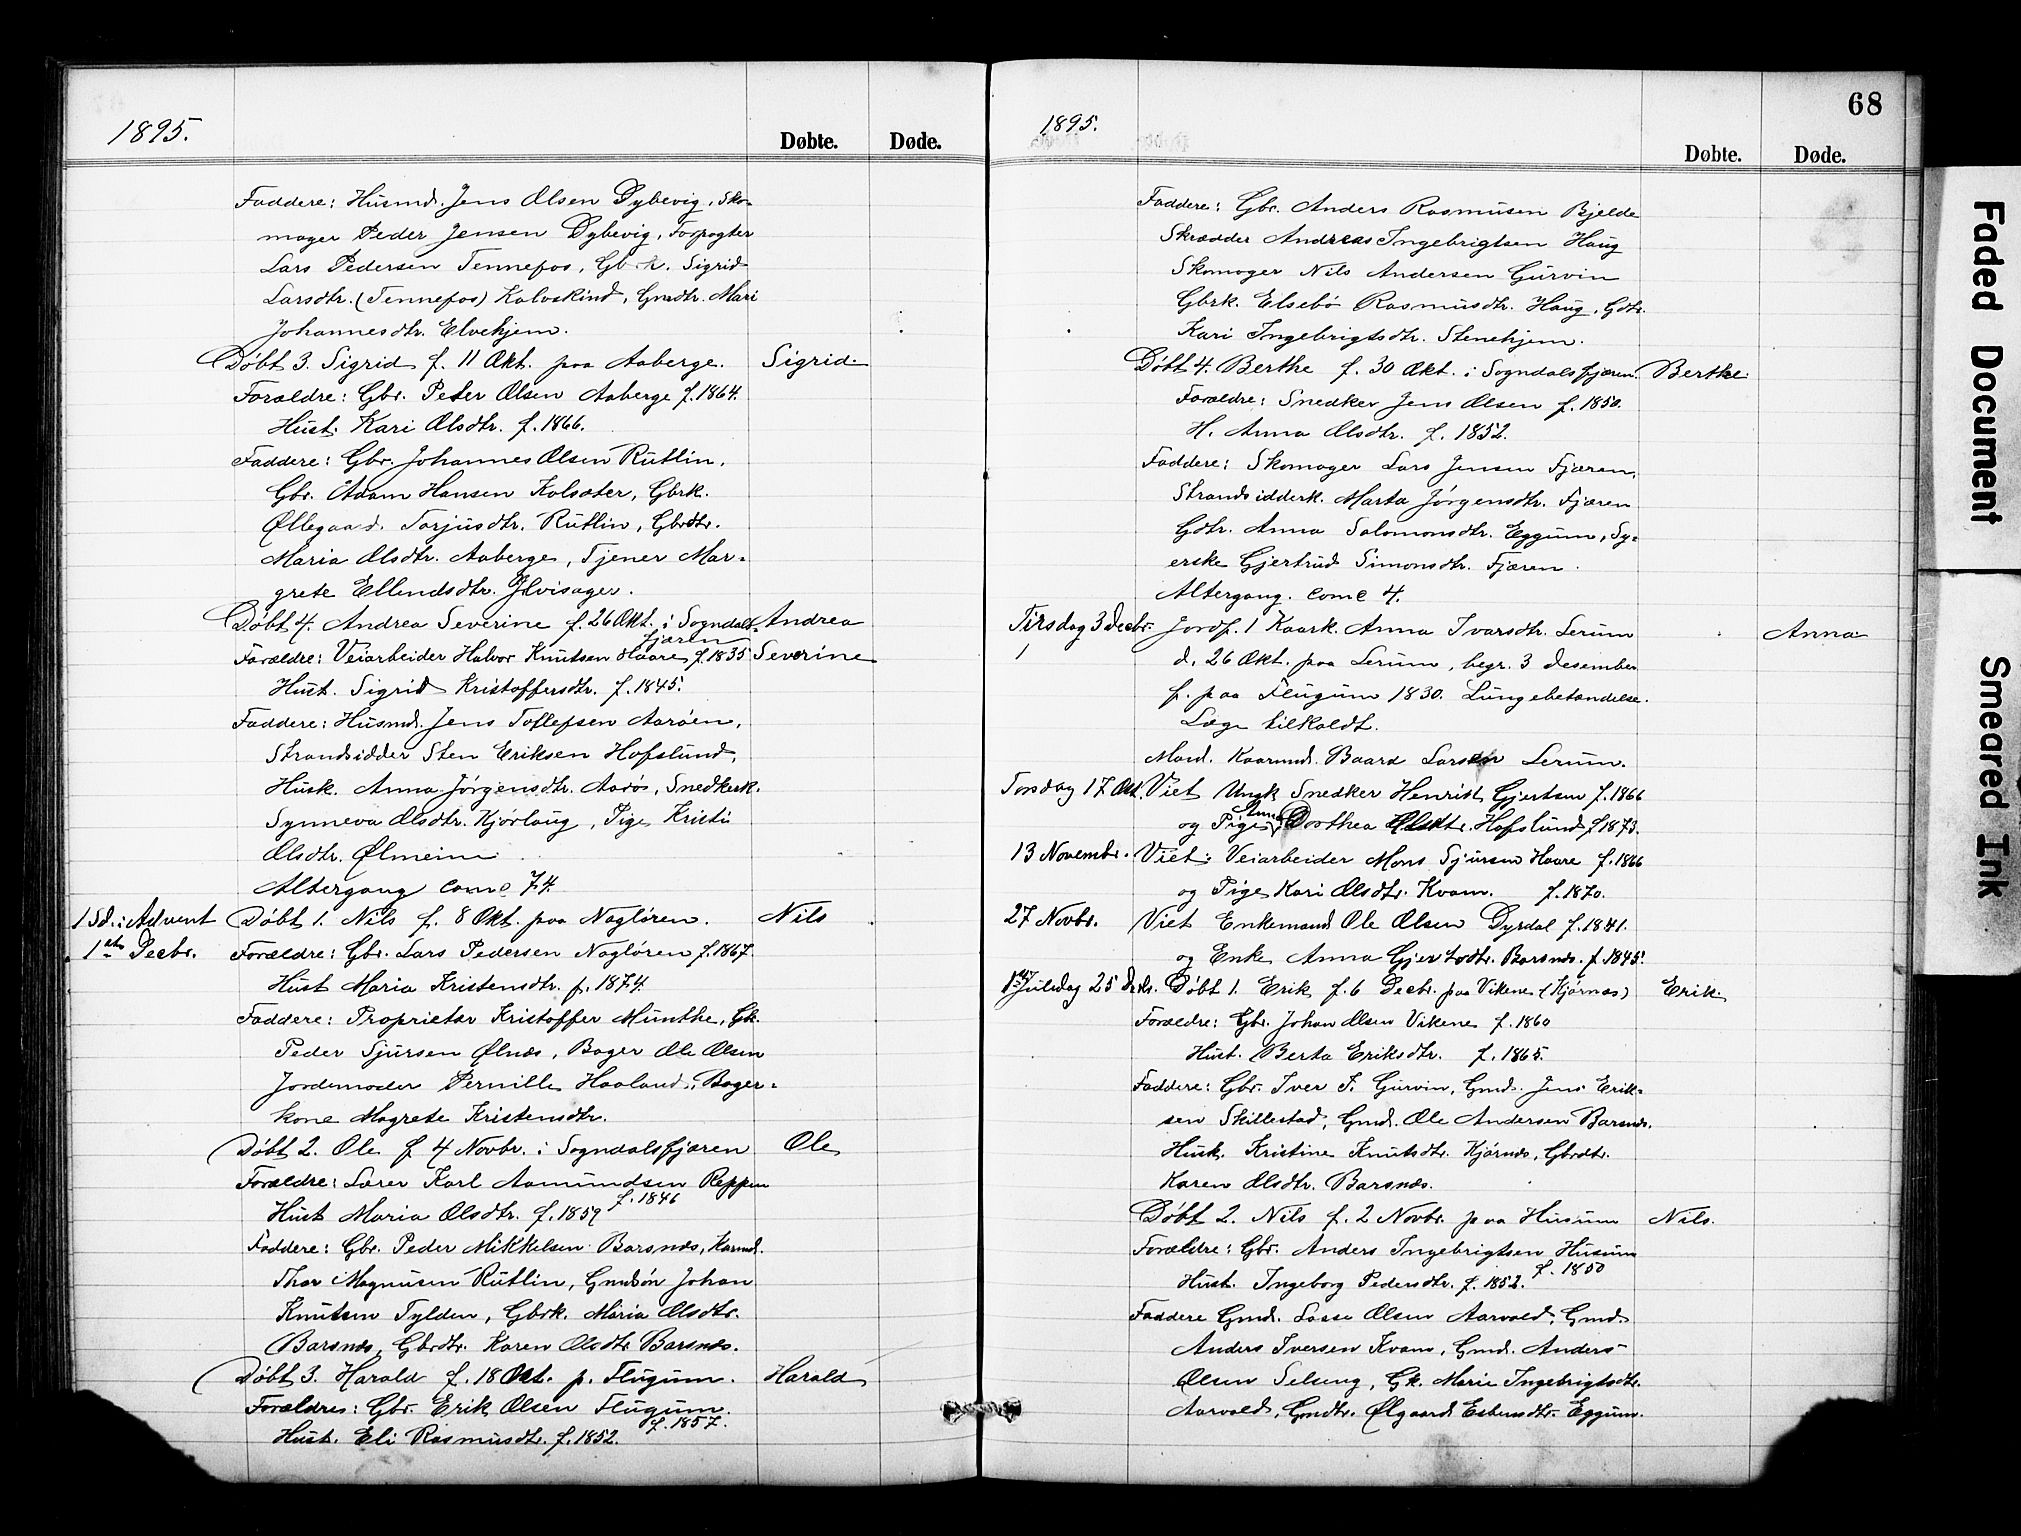 1895.
Døbte. Døde.
Faddere: Husmd. Jens Olsen Dybevig, Sko-
mager Peder Jensen Dybevig, Forpagter
Lars Pedersen Tennefos, Gbrk. Sigrid
Larsdtr. (Tennefos) Kalvskind, Gmdtr. Mari
Johannesdtr. Elvehjem.
Døbt 3. Sigrid f. 11 Okt. paa Aaberge. Sigrid
Forældre: Gbr. Peter Olsen Aaberge f. 1864.
Hust. Kari Olsdtr. f. 1866.
Faddere: Gbr. Johannes Olsen Rutlin,
Gbr. Adam Hansen Kolsæter, Gbrk.
Øllegaard Torjusdtr. Rutlin, Gbrdtr.
Maria Olsdtr. Aaberge, Tjener Mar-
grete Ellendsdtr. Ylvisager.
Døbt 4. Andrea Severine f. 26 Okt. i Sogndals- Andrea
fjæren
Forældre: Veiarbeider Halvor Knutsen Haare f. 1835 Severine
Hust. Sigrid Kristoffersdtr. f. 1845.
Faddere: Husmd. Jens Tollefsen Aarøen,
Strandsidder Sten Eriksen Hofslund,
Husk. Anna Jørgensdtr. Aarøs, Snedkerk.
Synneva Olsdtr. Kjørlaug, Pige Kristi
Olsdtr. Ølmeim
Altergang come 74.
1 Sd. i Advent Døbt 1. Nils f. 8 Okt. paa Nagløren. Nils
1ste Decbr. Forældre: Gbr. Lars Pedersen Nagløren f. 1867.
Hust Maria Kristensdtr. f. 1874.
Faddere: Proprietær Kristoffer Munthe, Gk.
Peder Sjursen Ølnæs, Bager Ole Olsen
Jordemoder Pernille Haaland, Bager-
kone Magrete Kristensdtr.
Døbt 2. Ole f 4 Novbr. i Sogndalsfjæren Ole
Forældre: Lærer Karl Aamundsen Reppen
f. 1846
Hust Maria Olsdtr. f. 1859
Faddere: Gbr. Peder Mikkelsen Barsnæs, Karmd.
Thor Magnusen Rutlin, Gmdsøn Johan
Knutsen Tylden, Gbrk. Maria Olsdtr.
Barsnæs, Gbrdtr. Karen Olsdtr Barsnæs.
Døbt 3. Harald f. 18 Okt. p. Flugum. Harald
Forældre: Gbr. Erik Olsen Flugum.
f. 1857.
Hust. Eli Rasmusdtr. f. 1852.
68
1895.
Døbte. Døde.
Faddere: Gbr. Anders Rasmusen Bjelde
Skrædder Andreas Ingebrigtsen Haug
Skomager Nils Andersen Gurvin
Gbrk. Elsebø Rasmusdtr. Haug, Gdtr.
Kari Ingebrigtsdtr. Stenehjem.
Døbt 4. Berthe f. 30 Okt. i Sogndalsfjæren. Berthe
Forældre: Snedker Jens Olsen f. 1850.
H. Anna Olsdtr. f. 1852.
Faddere: Skomager Lars Jensen Fjæren,
Strandsidderk. Marta Jørgensdtr. Fjæren
Gdtr. Anna Salomonsdtr. Eggum, Sy-
erske Gjertrud Simonsdtr. Fjæren.
Altergang. come 4.
Tirsdag 3 Decbr. Jordf. 1 Kaark. Anna Ivarsdtr. Lerum Anna
d. 26 Okt. paa Lerum, begr. 3 desember
f. paa Flugum 1830. Lungebetændelse.
Læge tilkaldt.
Mand. Kaarmd. Baard Larsen Lerum.
Torsdag 17 Okt. Viet Ungk Snedker Henrik Gjertsen f. 1866
og Pige Dorthea Olsdtr. Hofslund f 1873.
13 Novembr. Viet: Veiarbeider Mons Sjursen Haare f. 1866
og Pige Kari Olsdtr. Kvam. f. 1870.
27 Novbr. Viet Enkemand Ole Olsen Dyrdal f. 1841.
og Enke Anna Gjertsdtr. Barsnæs. f. 1845.
1ste Juledag 25 Decbr. Døbt 1. Erik f. 6 Decbr. paa Vikene (Kjørnæs) Erik
Forældre: Gbr. Johan Olsen Vikene f. 1860
Hust. Berta Eriksdtr. f. 1865.
Faddere: Gbr. Iver J. Gurvin, Gmd. Jens Erik-
sen Skillestad, Gmd. Ole Andersen Barsnæs.
Husk. Kristine Knutsdtr. Kjørnæs, Gbrdtr.
Karen Olsdtr. Barsnæs.
Døbt 2. Nils f. 2 Novbr. paa Husum Nils.
Forældre: Gbr. Anders Ingebrigtsen Husum
f. 1850
Hust. Ingeborg Pedersdtr. f. 1852.
Faddere Gmd. Lasse Olsen Aarvold, Gmd.
Anders Iversen Kvam, Gmd. Anders
Olsen Selseng, Gk. Marie Ingebrigtsdtr.
Aarvold, Gmdtr. Ølgaard Esbensdtr. Eggum.
Faded Document
Smeared Ink